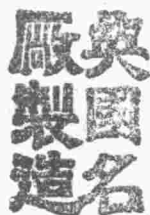 英國名
廠製造